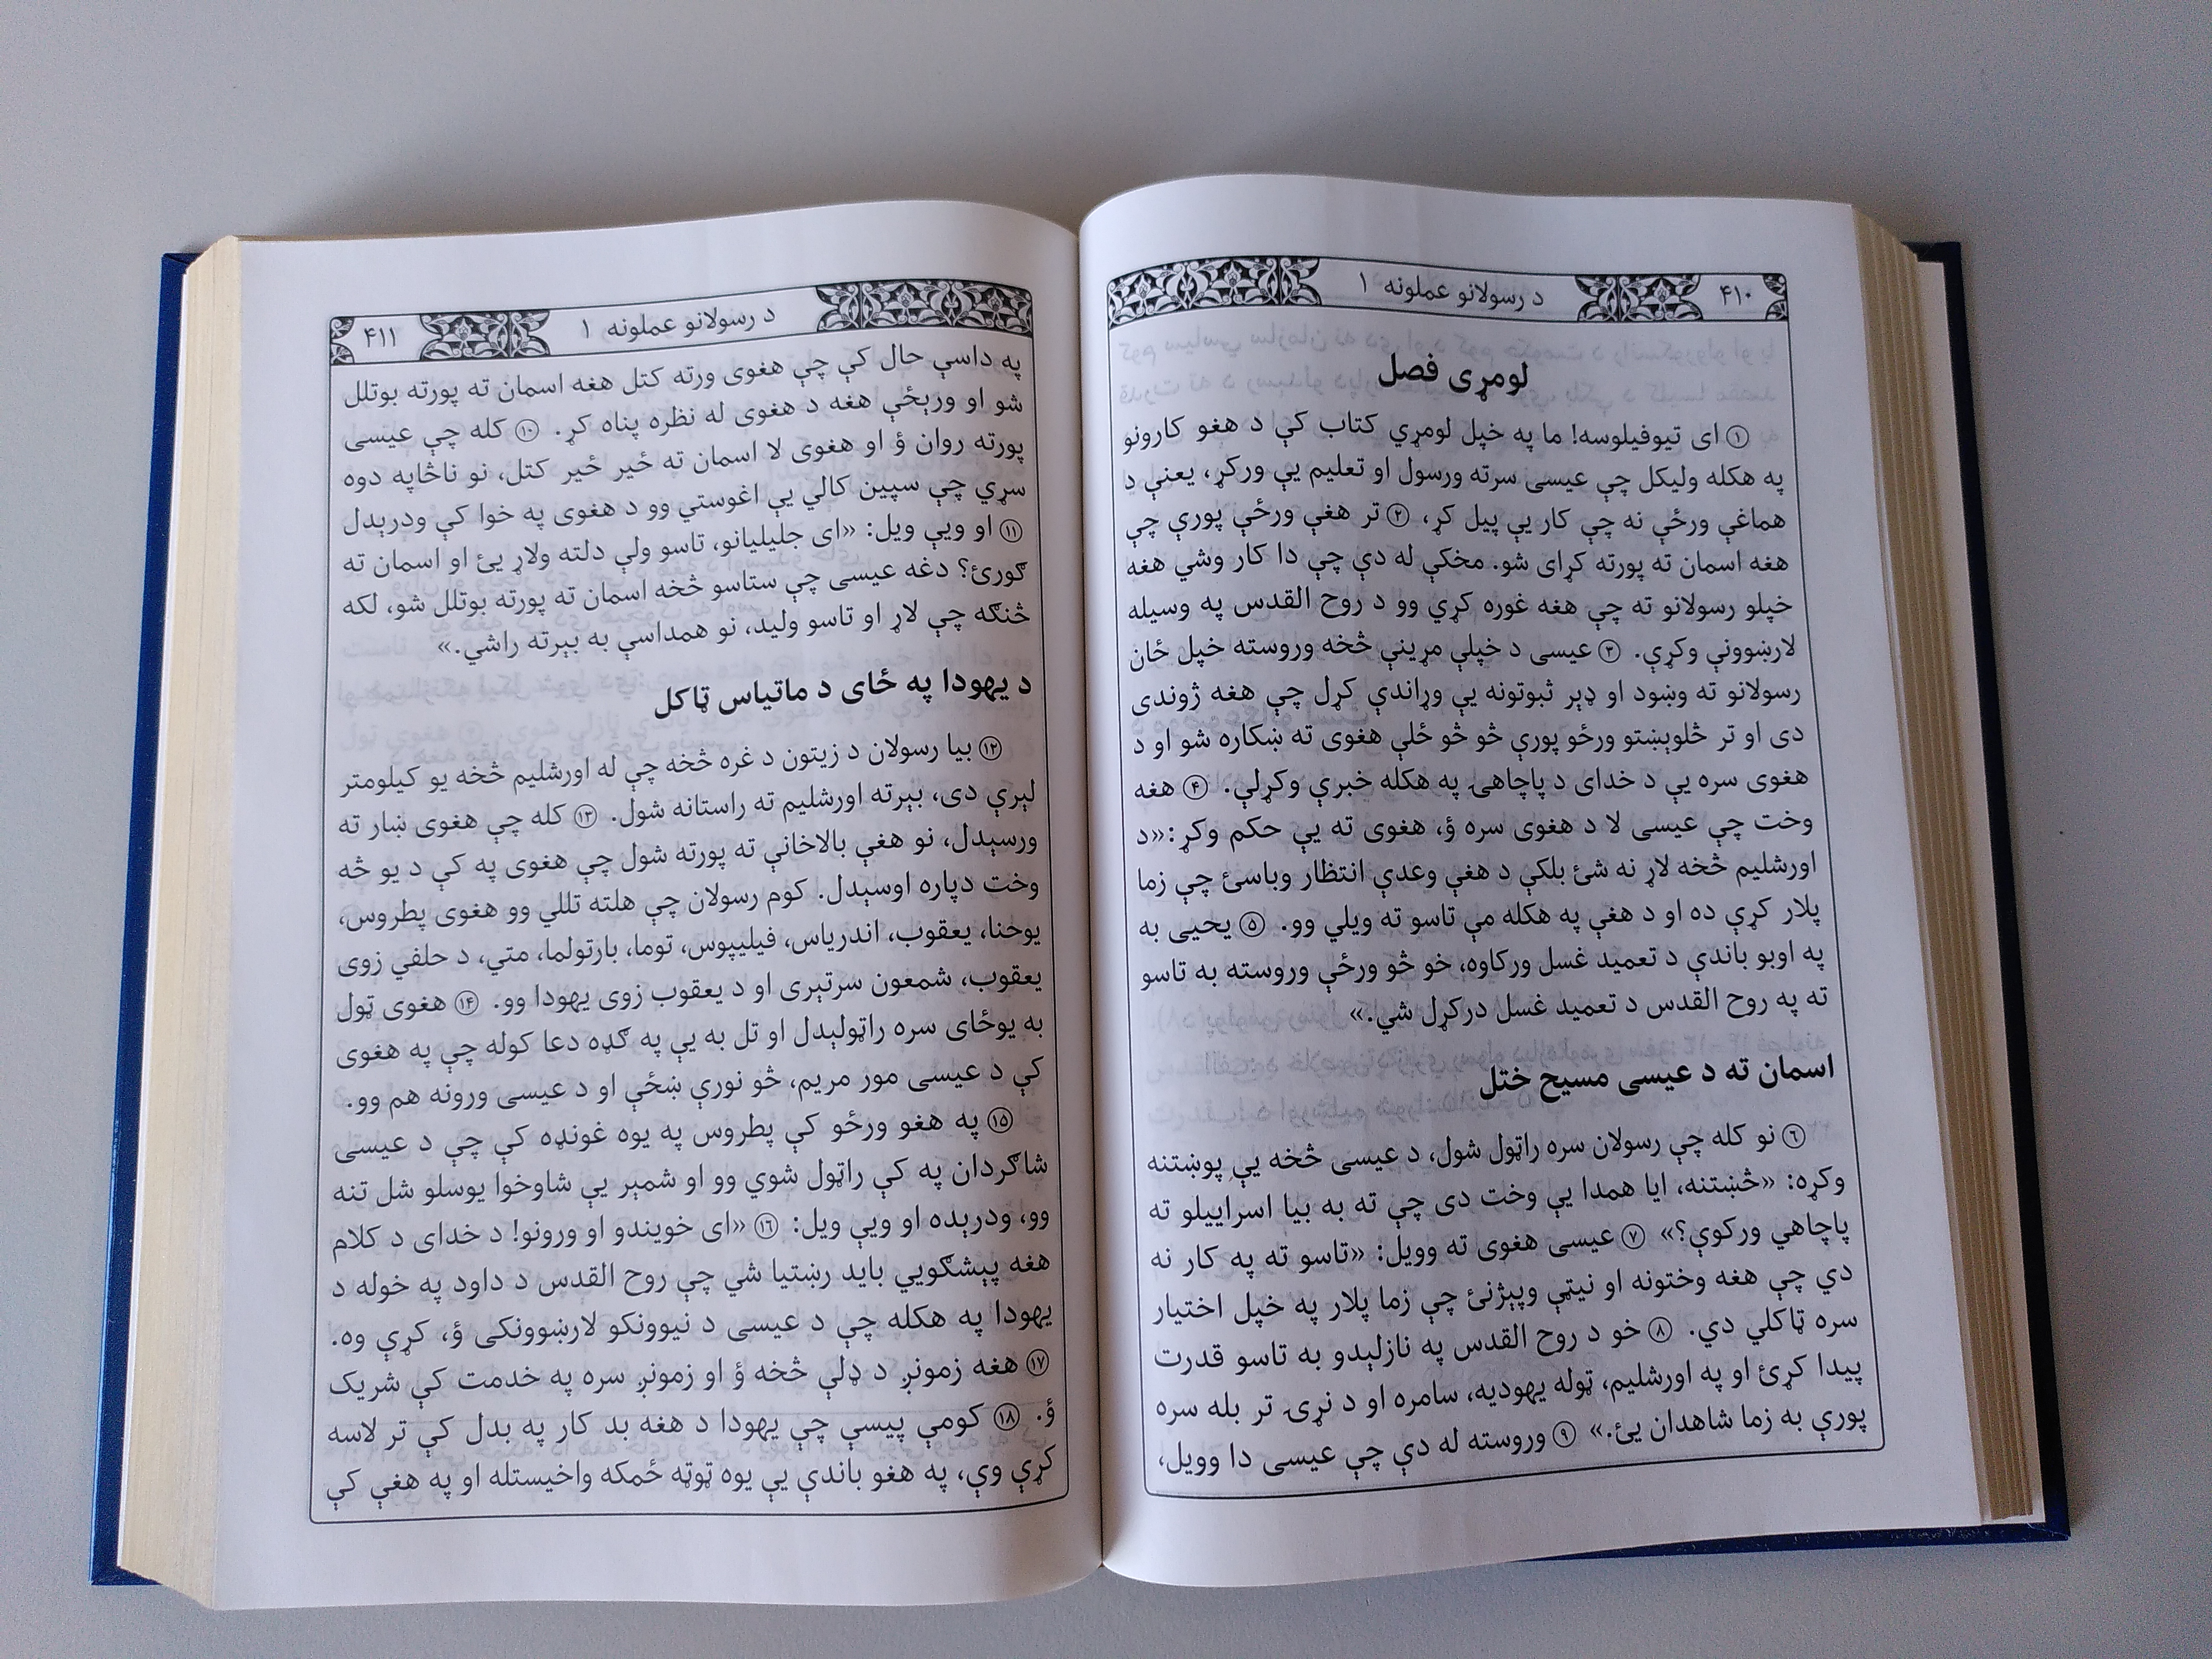 ۴۱۰ د رسولانو عملونه ۱
لومړی فصل
① ای تیوفیلوسه! ما په خپل لومړي کتاب کې د هغو کارونو
په هکله ولیکل چې عیسی سرته ورسول او تعلیم یې ورکړ، یعنې د
هماغې ورځې نه چې کار یې پیل کړ، ② تر هغې ورځې پورې چې
هغه اسمان ته پورته کړای شو. مخکې له دې چې دا کار وشي هغه
خپلو رسولانو ته چې هغه غوره کړي وو د روح القدس په وسیله
لارښوونې وکړې. ③ عیسی د خپلې مړینې څخه وروسته خپل ځان
رسولانو ته وښود او ډېر ثبوتونه یې وړاندې کړل چې هغه ژوندی
دی او تر څلوېښتو ورځو پورې څو څو ځلې هغوی ته ښکاره شو او د
هغوی سره یې د خدای د پاچاهۍ په هکله خبرې وکړلې. ④ هغه
وخت چې عیسی لا د هغوی سره ؤ، هغوی ته یې حکم وکړ:«د
اورشلیم څخه لاړ نه شئ بلکې د هغې وعدې انتظار وباسئ چې زما
پلار کړې ده او د هغې په هکله مې تاسو ته ویلي وو. ⑤ یحیی به
په اوبو باندې د تعمید غسل ورکاوه، خو څو ورځې وروسته به تاسو
ته په روح القدس د تعمید غسل درکړل شي.»
اسمان ته د عیسی مسیح ختل
⑥ نو کله چې رسولان سره راټول شول، د عیسی څخه یې پوښتنه
وکړه: «څښتنه، ایا همدا یې وخت دی چې ته به بیا اسراییلو ته
پاچاهي ورکوې؟» ⑦ عیسی هغوی ته وویل: «تاسو ته په کار نه
دي چې هغه وختونه او نیټې وپېژنئ چې زما پلار په خپل اختیار
سره ټاکلي دي. ⑧ خو د روح القدس په نازلېدو به تاسو قدرت
پیدا کړئ او په اورشلیم، ټوله یهودیه، سامره او د نړۍ تر بله سره
پورې به زما شاهدان یئ.» ⑨ وروسته له دې چې عیسی دا وویل،
د رسولانو عملونه ۱ ۴۱۱
په داسې حال کې چې هغوی ورته کتل هغه اسمان ته پورته بوتلل
شو او ورېځې هغه د هغوی له نظره پناه کړ. ⑩ کله چې عیسی
پورته روان ؤ او هغوی لا اسمان ته ځیر ځیر کتل، نو ناڅاپه دوه
سړي چې سپین کالي یې اغوستي وو د هغوی په خوا کې ودرېدل
⑪ او ویې ویل: «ای جلیلیانو، تاسو ولې دلته ولاړ یئ او اسمان ته
ګورئ؟ دغه عیسی چې ستاسو څخه اسمان ته پورته بوتلل شو، لکه
څنګه چې لاړ او تاسو ولید، نو همداسې به بېرته راشي.»
د یهودا په ځای د ماتیاس ټاکل
⑫ بیا رسولان د زیتون د غره څخه چې له اورشلیم څخه یو کیلومتر
لېرې دی، بېرته اورشلیم ته راستانه شول. ⑬ کله چې هغوی ښار ته
ورسېدل، نو هغې بالاخانې ته پورته شول چې هغوی په کې د یو څه
وخت دپاره اوسېدل. کوم رسولان چې هلته تللي وو هغوی پطروس،
یوحنا، یعقوب، اندریاس، فیلیپوس، توما، بارتولما، متي، د حلفي زوی
یعقوب، شمعون سرتېری او د یعقوب زوی یهودا وو. ⑭ هغوی ټول
به یوځای سره راټولېدل او تل به یې په ګډه دعا کوله چې په هغوی
کې د عیسی مور مریم، څو نورې ښځې او د عیسی ورونه هم وو.
⑮ په هغو ورځو کې پطروس په یوه غونډه کې چې د عیسی
شاګردان په کې راټول شوي وو او شمېر یې شاوخوا یوسلو شل تنه
وو، ودرېده او ویې ویل: ⑯ «ای خویندو او ورونو! د خدای د کلام
هغه پېشګویي باید رښتیا شي چې روح القدس د داود په خوله د
یهودا په هکله چې د عیسی د نیوونکو لارښوونکی ؤ، کړې وه.
⑰ هغه زمونږ د ډلې څخه ؤ او زمونږ سره په خدمت کې شریک
ؤ. ⑱ کومې پیسې چې یهودا د هغه بد کار په بدل کې تر لاسه
کړې وې، په هغو باندې یې یوه ټوټه ځمکه واخیستله او په هغې کې